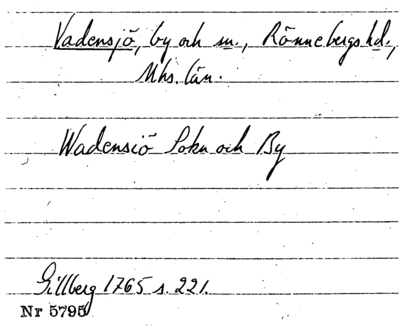 Vadensjö, by och sn., Rönnebergs hd.,
Mhs. län.
Wadensiö Sokn och By
Gillberg 1765 s. 221.
Nr 5795